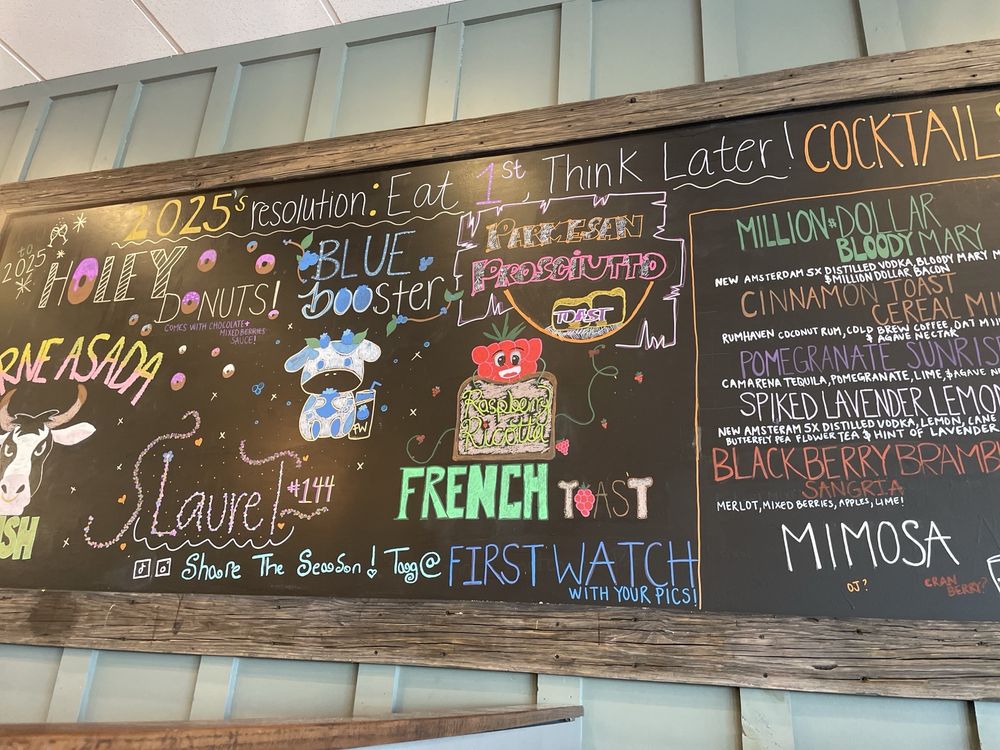 2025's resolution: Eat 1st, Think Later!
to
2025
HOLEY
DONUTS!
COMES WITH CHOCOLATE +
MIXED BERRIES
SAUCE!
BLUE
booster
PARMESAN
PROSCIUTTO
TOAST
RNE ASADA
SH
FW
Raspberry
Ricotta
FRENCH TOAST
Laurel #144
Share The Season! Tag@ FIRST WATCH
WITH YOUR PICS!
COCKTAIL
MILLION $ DOLLAR
BLOODY MARY
NEW AMSTERDAM 5X DISTILLED VODKA, BLOODY MARY M
$ MILLION DOLLAR BACON
CINNAMON TOAST
CEREAL MI
RUMHAVEN COCONUT RUM, COLD BREW COFFEE, OAT MI
& AGAVE NECTAR
POMEGRANATE SUNRIS
CAMARENA TEQUILA, POMEGRANATE, LIME, $ AGAVE N
SPIKED LAVENDER LEMO
NEW AMSTERDAM 5X DISTILLED VODKA, LEMON, CANE
BUTTERFLY PEA FLOWER TEA $ HINT OF LAVENDER
BLACKBERRY BRAMB
SANGRIA
MERLOT, MIXED BERRIES, APPLES, LIME!
MIMOSA
OJ?
CRAN
BERRY?